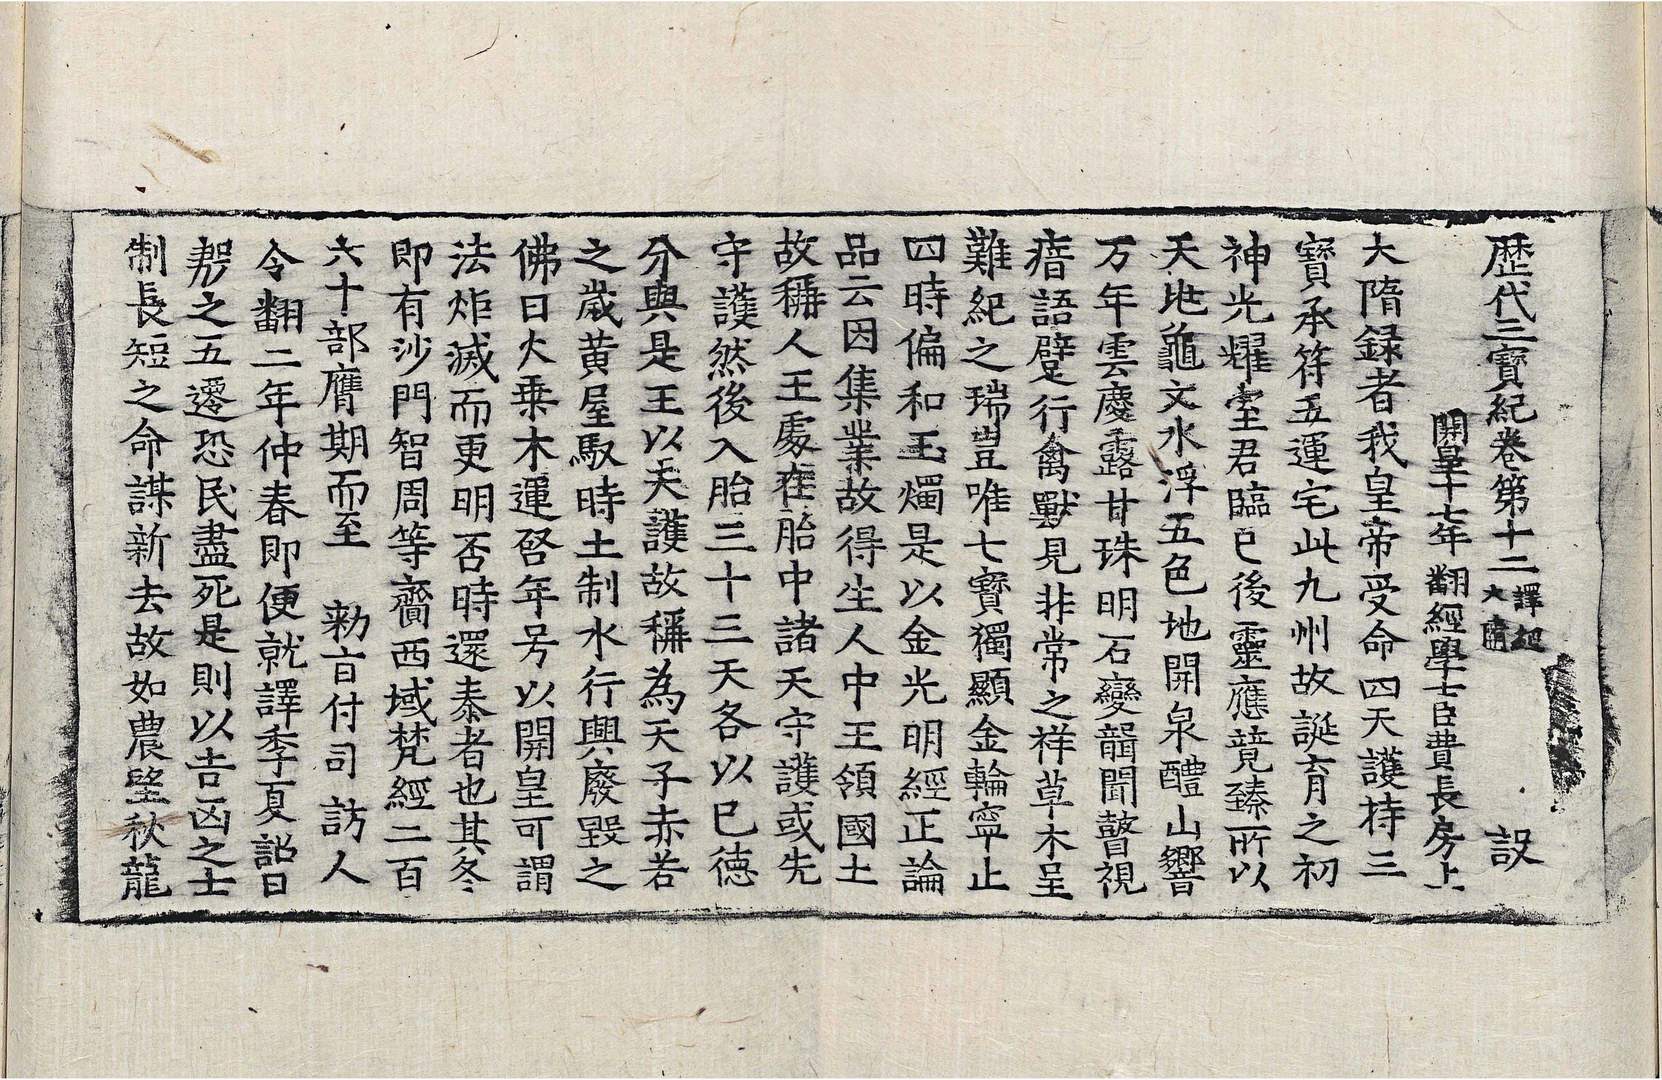 歷代三寶紀卷第十二 譯經大隋 設
開皇十七年翻經學士臣費長房上
大隋録者我皇帝受命四天護持三
寶承符五運宅此九州故誕育之初
神光耀室君臨已後靈應竟臻所以
天地龜文水浮五色地開泉醴山響
万年雲慶露甘珠明石變聾聞瞽視
瘖語躄行禽獸見非常之祥草木呈
難紀之瑞豈唯七寶獨顯金輪寧止
四時偏和玉燭是以金光明經正論
品云因集業故得生人中王領國土
故稱人王處在胎中諸天守護或先
守護然後入胎三十三天各以已德
分與是王以天護故稱為天子赤若
之歲黃屋馭時土制水行興廢毀之
佛日火乗木運啓年号以開皇可謂
法炸滅而更明否時還泰者也其冬
即有沙門智周等齎西域梵經二百
六十部膺期而至 勑旨付司訪人
令翻二年仲春即便就譯季夏詔曰
㓝之五遷恐民盡死是則以吉凶之土
制長短之命謀新去故如農望秋龍